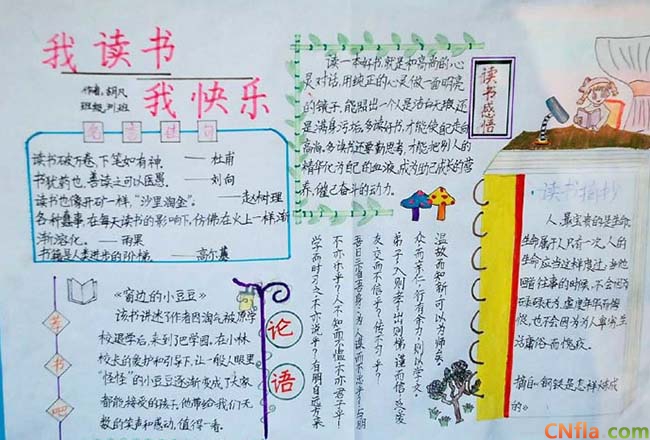 我读书
我快乐
作者：胡风
班级：列班
名言佳句
读书破万卷，下笔如有神。——杜甫
书犹药也，善读之可以医愚。——刘向
读书也像开矿一样，“沙里淘金”。——赵树理
各种蠢事，在每天读书的影响下，仿佛在火上一样渐
渐溶化。——雨果
书籍是人类进步的阶梯。——高尔基
读一本好书，就是和高高的心
灵对话，用纯正的心灵做一面明亮
的镜子，能照出一个人是洁白无瑕，还
是满身污垢，多读好书，才能使
高尚，多读书还要勤思考，才能把别人的
精华化为自己的血液，成为助己成长的营
养，催己奋斗的动力。
读书感悟
读书摘抄
人最宝贵的是生命，
生命属于人只有一次，人的
生命应当这样度过：当他
回首往事的时候，不会因为
碌碌无为，虚度年华而悔
恨，也不会因为为人卑劣，生
活庸俗而愧疚。
摘自《钢铁是怎样炼成
的》
荐书吧
《窗边的小豆豆》
该书讲述了作者因淘气被原学
校退学后，来到巴学园，在小林
校长的爱护和引导下，让一般人眼里
“怪怪”的小豆豆逐渐变成了大家
都能接受的孩子，他带给我们无
数的笑声和感动，值得一看。
论语
温故而知新，可以为师矣。
众，而亲仁，行有余力，则以学文。
弟子入则孝，出则悌，谨而信，泛爱
友交而不信乎？传不习乎？
吾日三省吾身：为人谋而不忠乎？与朋
不亦乐乎？人不知而不愠，不亦君子乎！
学而时习之，不亦说乎？有朋自远方来，
CNfla.com